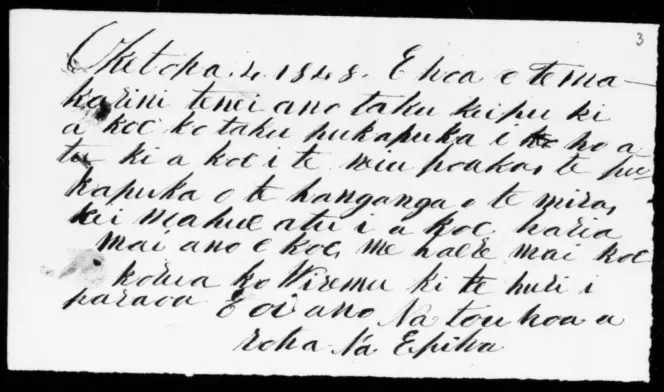 3
Oketopa. 4. 1848. E hoa e te ma
karini tenei ano taku kupu ki
a koe ko taku pukapuka i ho a
tu ki a koe i te poaka, te pu
kapuka o te hanganga o te mira,
kei mahue atu i a koe haria
mai ano e koe, me haere mai koe
korua ko Wiremu ki te huri i
paraoa E oi ano Na tou hoa a
roha Na Epiha